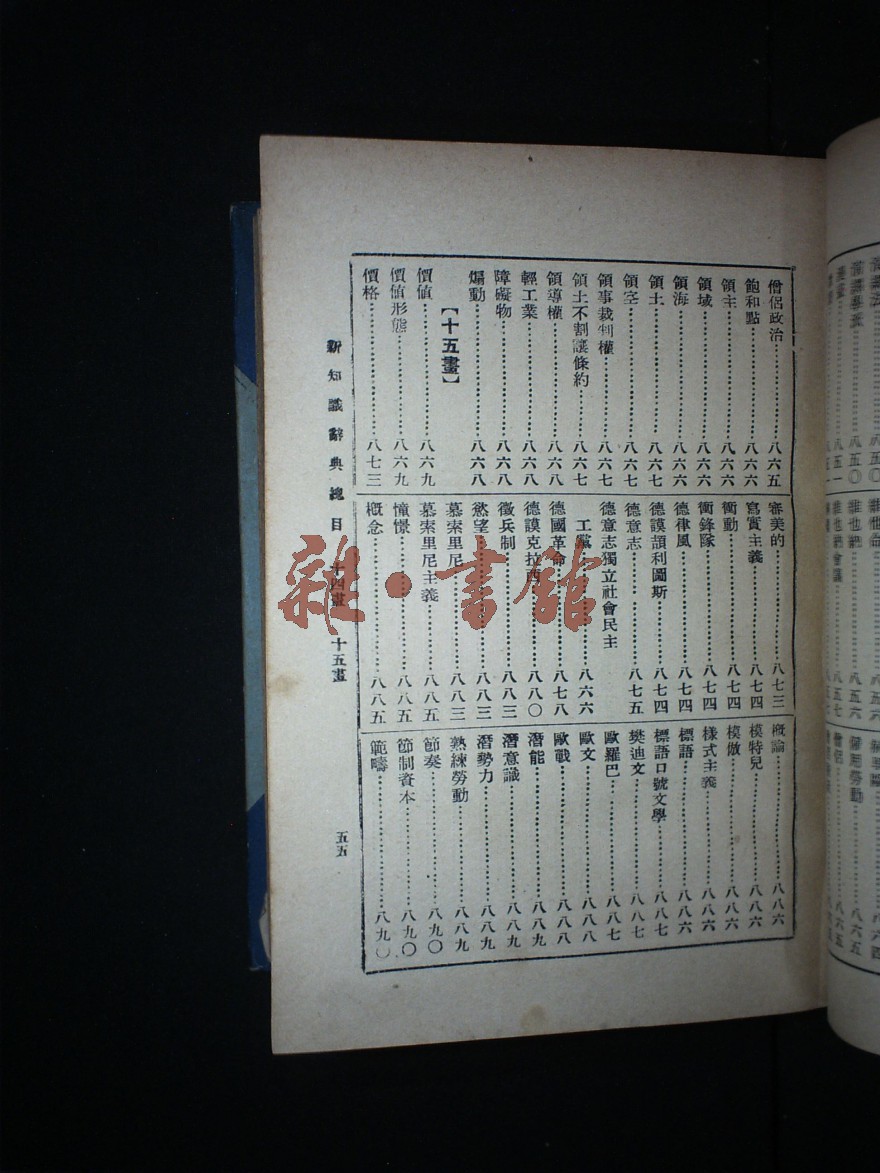 僧侶政治……八六五
飽和點……八六六
領主……八六六
領域……八六六
領海……八六六
領土……八六七
領空……八六七
領事裁判權……八六七
領土不割讓條約……八六七
領導權……八六八
輕工業……八六八
障礙物……八六八
煽動……八六八
【十五畫】
價值……八六九
價值形態……八六九
價格……八七三
審美的……八七三
寫實主義……八七四
衝動……八七四
衝鋒隊……八七四
德律風……八七四
德謨頡利圖斯……八七四
德意志……八七五
德意志獨立社會民主
工黨……八六六
德國革命……八七八
德謨克拉西……八八〇
徵兵制……八八三
慾望……八八三
慕索里尼……八八三
慕索里尼主義……八八五
憧憬……八八五
概念……八八五
概論……八八六
模特兒……八八六
模倣……八八六
樣式主義……八八六
標語……八八六
標語口號文學……八八七
樊迪文……八八七
歐羅巴……八八七
歐文……八八八
歐戰……八八八
潛能……八八九
潛意識……八八九
潛勢力……八八九
熟練勞動……八八九
節奏……八九〇
節制資本……八九〇
範疇……八九〇
新知識辭典總目 十四畫 十五畫 五五
雜·書館